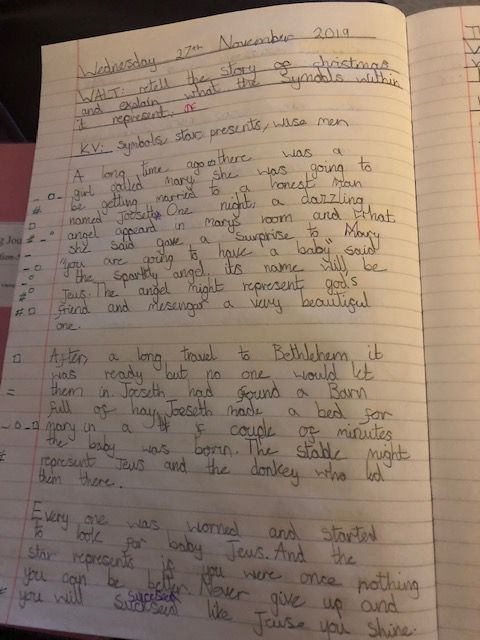 Wednesday 27th November 2019
WALT: retell the story of christmas
and explain what the symbols within
it represent.
KV: Symbols, star, presents, wise men
A long time ago there was a
girl called mary, she was going to
be getting married to a honest man
named Joeseth. One night, a dazzling
angel appeard in Mary's room and what
she said gave a surprise to Mary
"you are going to have a baby" said
the sparkly angel, its name will be
Jeus. The angel might represent gods
friend and mesenger a very beautiful
one.
After a long travel to Bethlehem, it
was ready but no one would let
them in. Joeseth had found a Barn
full of hay, Joeseth made a bed for
mary in a couple of minutes
the baby was born. The stable might
represent Jeus and the donkey who led
them there.
Every one was worried and started
to look for baby Jeus. And the
star represents if you were once nothing
you can be better. Never give up and
you will suckseed like Jeuse you shine.